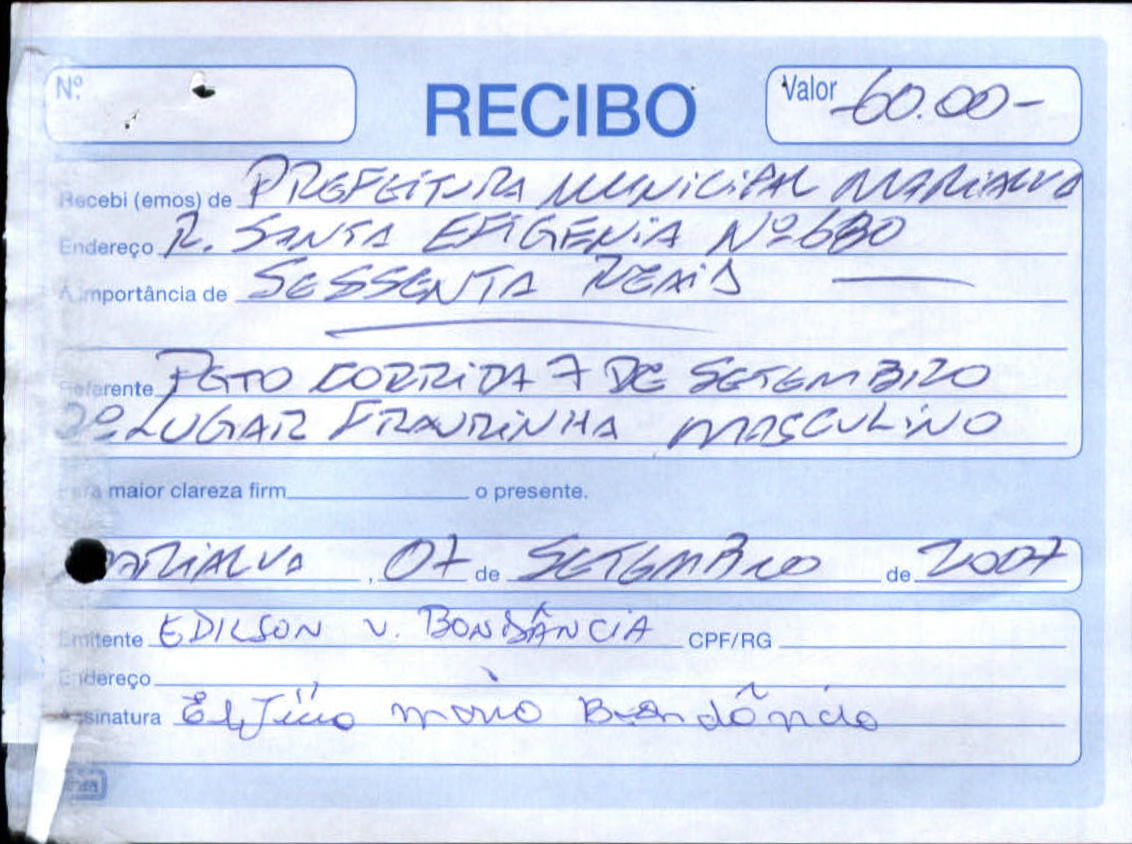 Nº.
RECIBO
Valor 60.00-
Recebi (emos) de PREFEITURA MUNICIPAL MARIALVA
Endereço R. SANTA EFIGENIA Nº 680
A importância de SESSENTA REAIS
Referente PGTO CORRIDA 7 DE SETEMBRO
LUGAR FRAUDINHA MASCULINO
Para maior clareza firm o presente.
MARIALVA, 07 de SETEMBRO de 2007
Emitente EDILSON V. BONDÂNCIA CPF/RG
Endereço
Assinatura